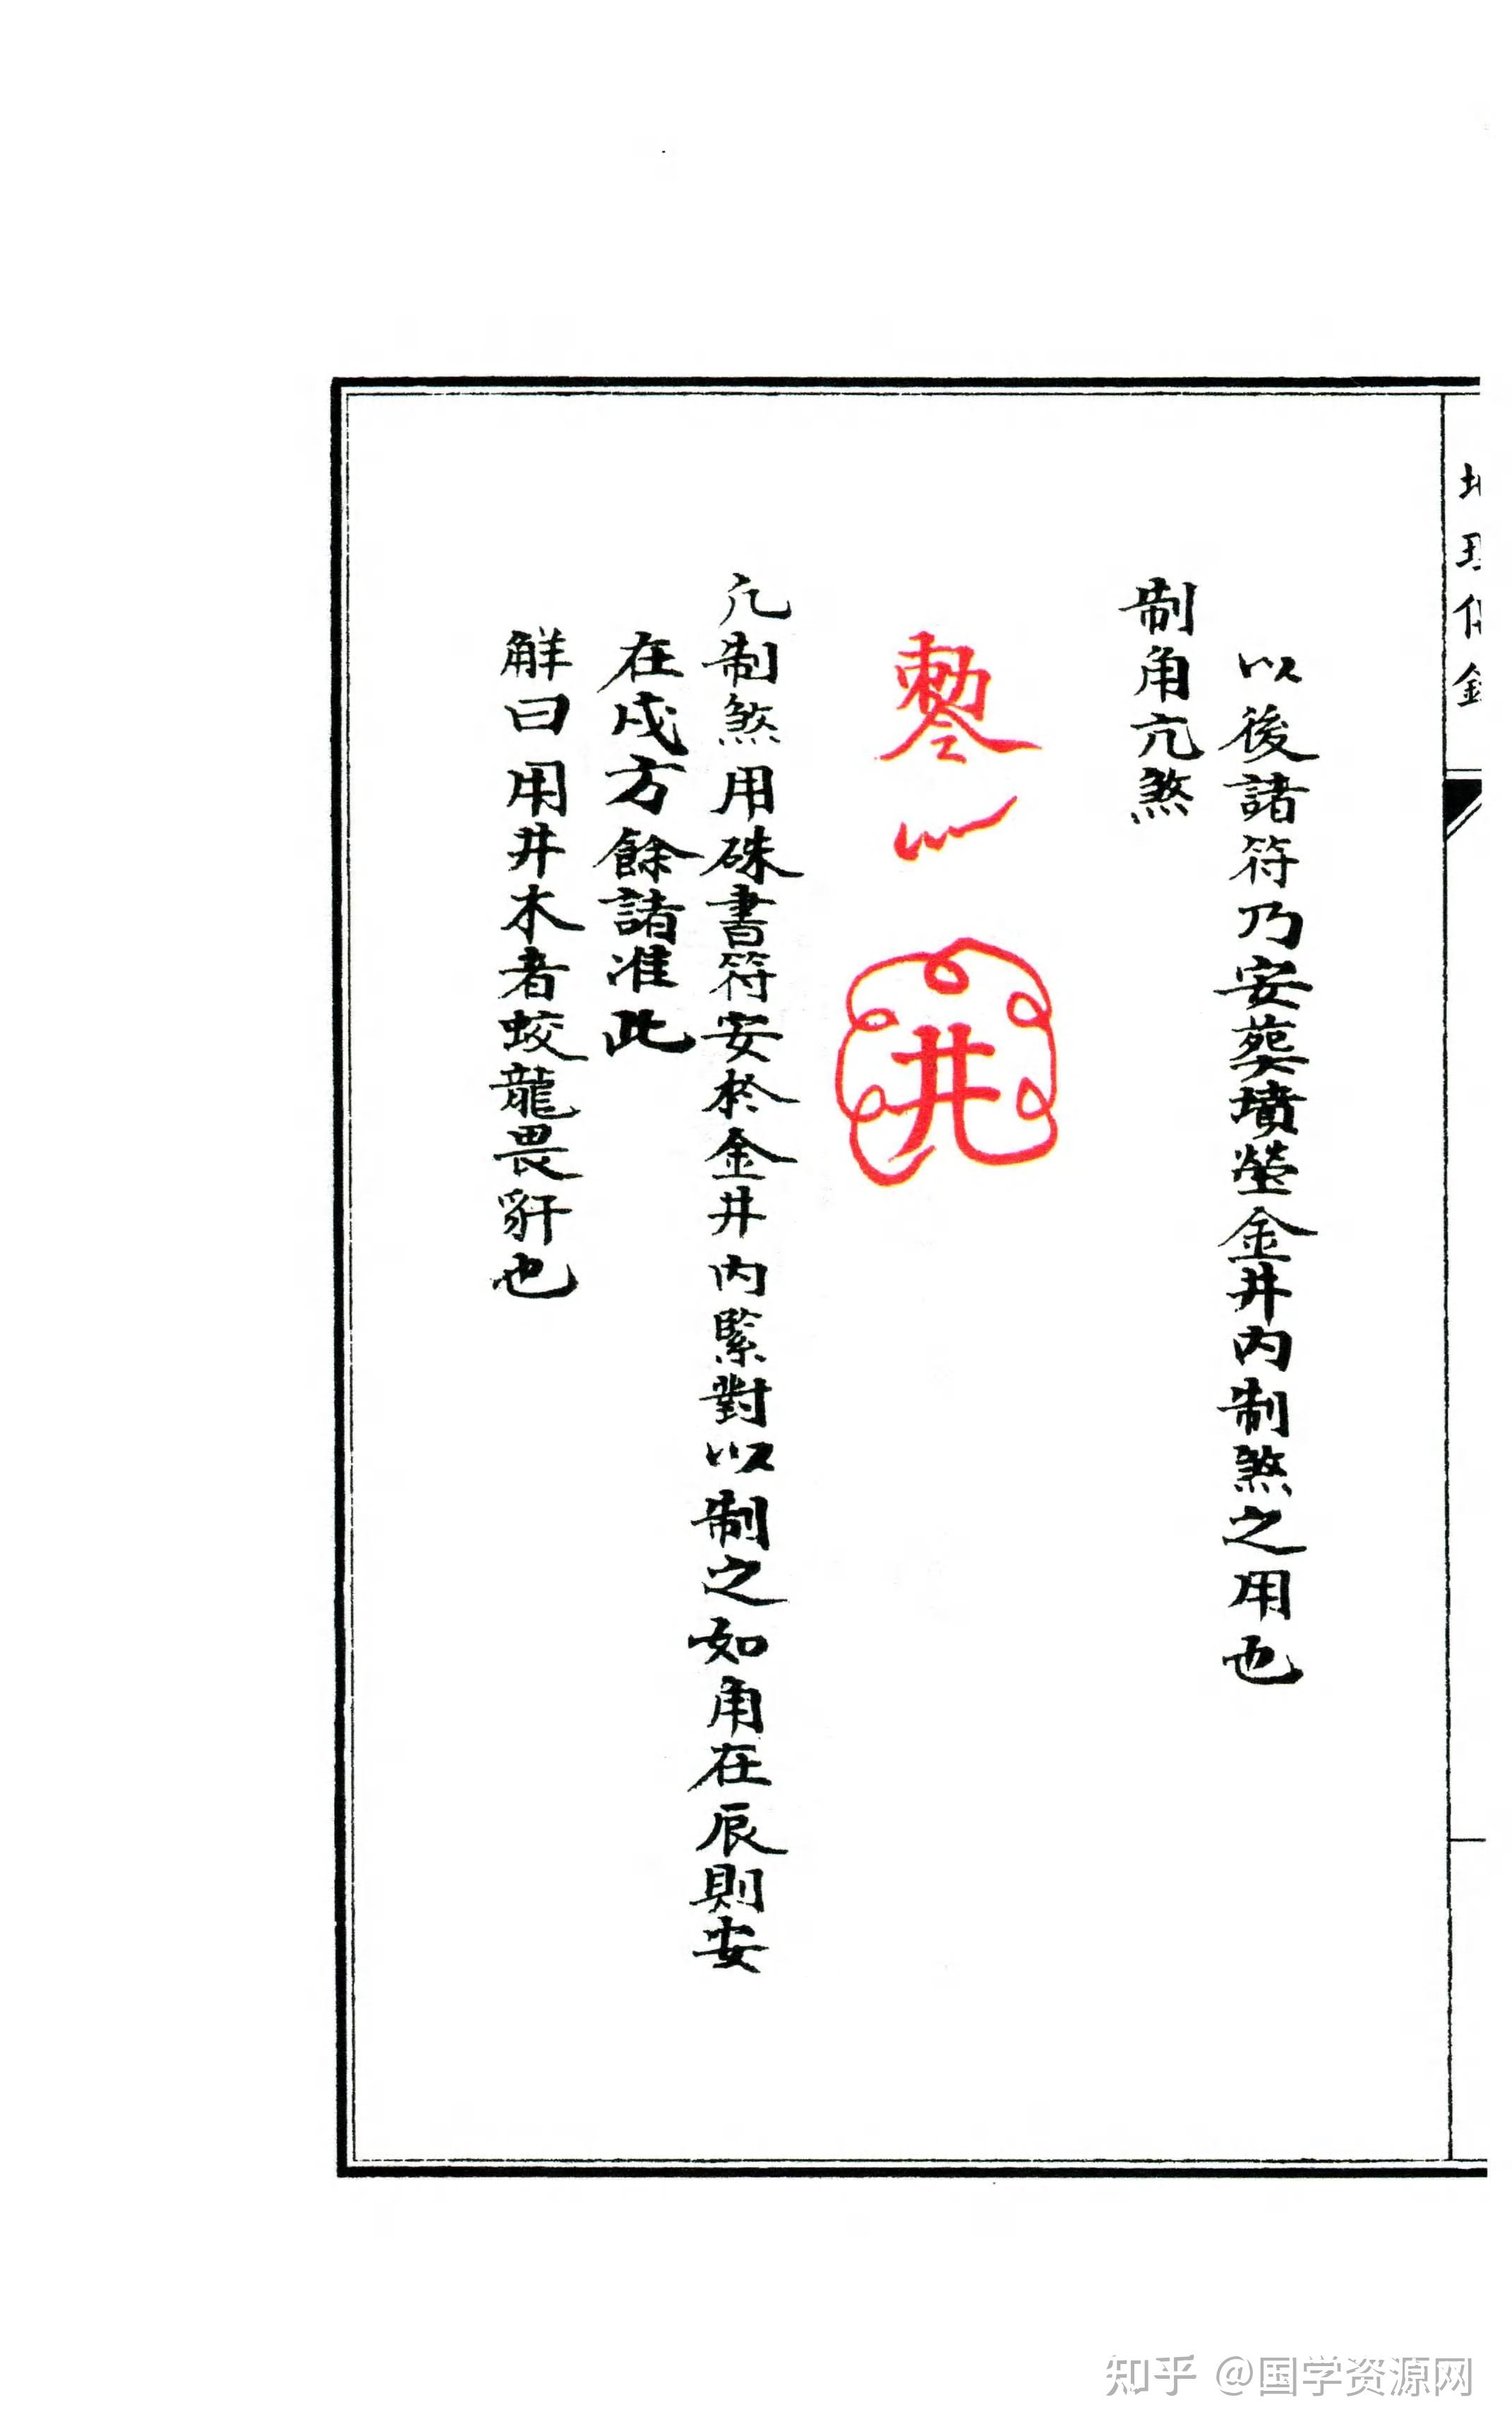 以後諸符乃安葬墳塋金井内制煞之用也
制角亢煞
敕令
井
凢制煞用硃書符安於金井内緊對以制之如角在辰則安
在戌方餘諸准此
觧曰用井木者蛟龍畏犴也
知乎 @国学资源网